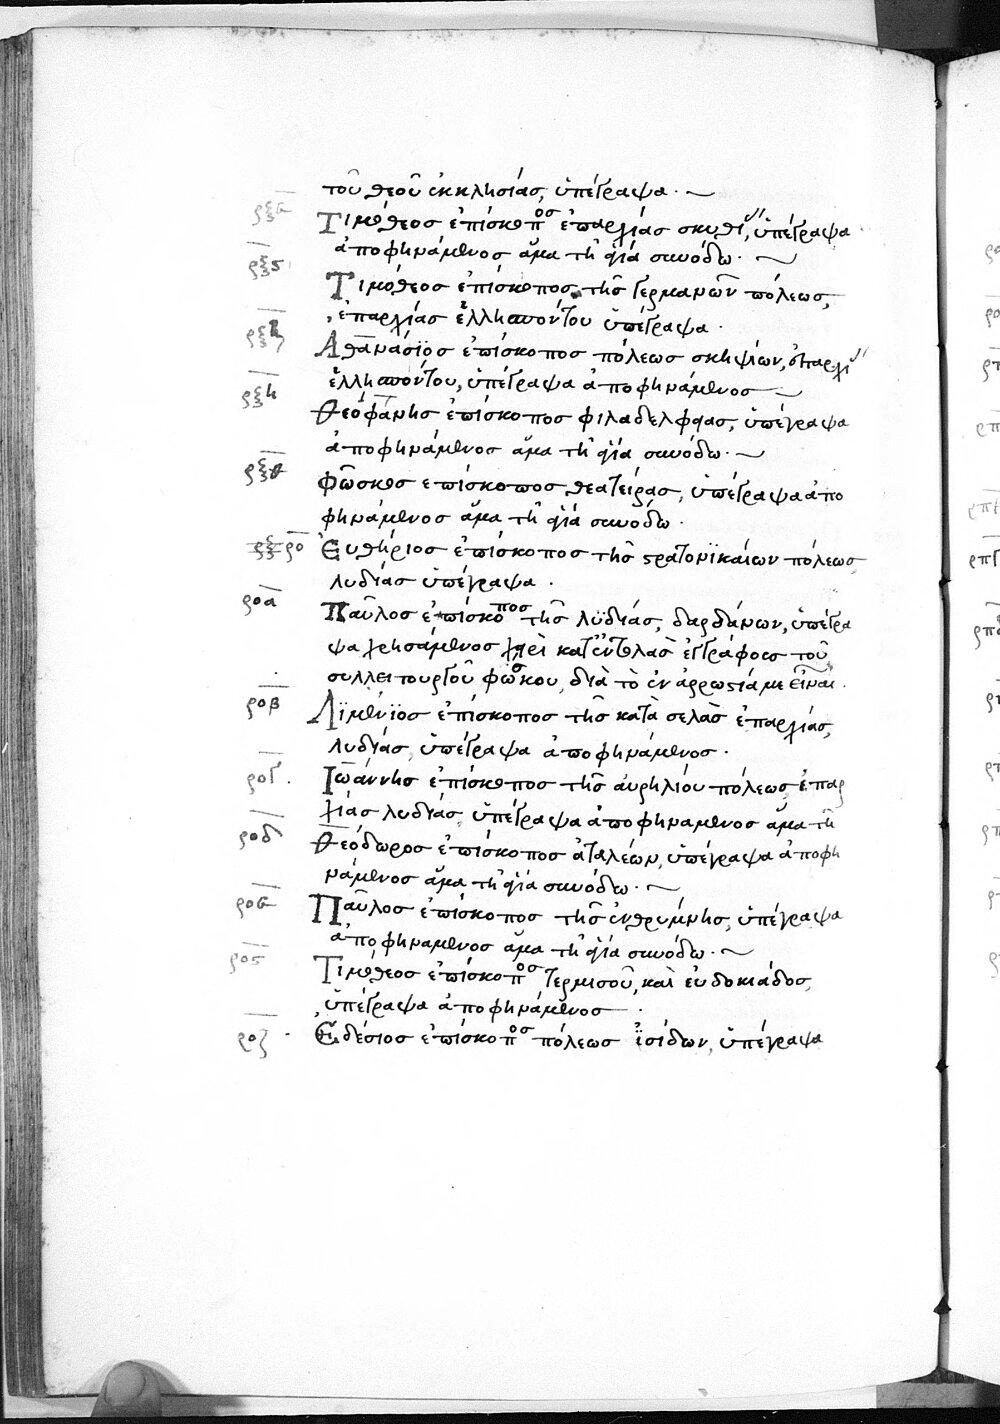 τοῦ θεοῦ ἐκκλησίας, ὑπέγραψα.
ρξε Τιμόθεος ἐπίσκοπος ἐπαρχίας σκυθί, ὑπέγραψα
ἀποφηνάμενος ἅμα τῆ ἁγία συνόδω.
ρξς Τιμόθεος ἐπίσκοπος τῆς γερμανῶν πόλεως,
ἐπαρχίας ἑλλησπόντου ὑπέγραψα.
ρξζ Ἀθανάσϊος ἐπίσκοπος πόλεως σκηψίων, ἐπαρχί
ἑλλησπόντου, ὑπέγραψα ἀποφηνάμενος
ρξη Θεοφάνης ἐπίσκοπος φιλαδελφίας, ὑπέγραψα
ἀποφηνάμενος ἅμα τῆ ἁγία συνόδω.
ρξθ φῶσκος ἐπίσκοπος θεατείρας, ὑπέγραψα ἀπο
φηνάμενος ἅμα τῆ ἁγία συνόδω.
ρο Ἐυθήριος ἐπίσκοπος τῆς στρατονϊκαίων πόλεως
λυδίας ὑπέγραψα.
ροα Παῦλος ἐπίσκοπος τῆς λϋδίας, δαρδάνων, ὑπέγρα
ψα χρησάμενος χειρὶ κατ' ἐντολὰς ἐγγράφοις τοῦ
συλλειτουργοῦ φώσκου, διὰ τὸ ἐν ἀρρωστία με εἶναι.
ροβ Λϊμένϊος ἐπίσκοπος τῆς κατὰ σελὰς ἐπαρχίας,
λυδίας, ὑπέγραψα ἀποφηνάμενος.
ρογ. Ἰωάννης ἐπίσκοπος τῆς ἀυρηλίου πόλεως ἐπαρ
χίας λυδίας, ὑπέγραψα ἀποφηναμενος ἅμα τῆ
ροδ Θεόδωρος ἐπίσκοπος ἀταλέων, ὑπέγραψα ἀποφη
νάμενος ἅμα τῆ ἁγία συνόδω.
ροε Παῦλος ἐπίσκοπος τῆς ἐνθρύμνης, ὑπέγραψα
ἀποφηναμενος ἅμα τῆ ἁγία συνόδω.
ρος Τιμόθεος ἐπίσκοπος τερμισοῦ, καὶ ἐυδοκιάδος,
ὑπέγραψα ἀποφηνάμενος
ροζ Ἐδέσιος ἐπίσκοπος πόλεως ἰσίδων, ὑπέγραψα